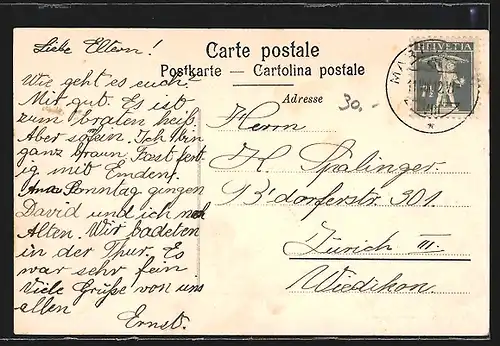 Liebe Eltern!
Wie geht es euch.
Mir gut. Es ist
zum braten heiß.
Aber so fein. Ich bin
ganz braun. Fast fert
ig mit Emden.
Am Sonntag gingen
David und ich nach
Alten. Wir badeten
in der Thur. Es
war sehr fein
Viele Grüße von uns
allen
Ernst.
Carte postale
Postkarte — Cartolina postale
Adresse
30.-
Herrn
H. Spalinger
B'dorferstr. 301
Zürich III.
Wiedikon.
HELVETIA